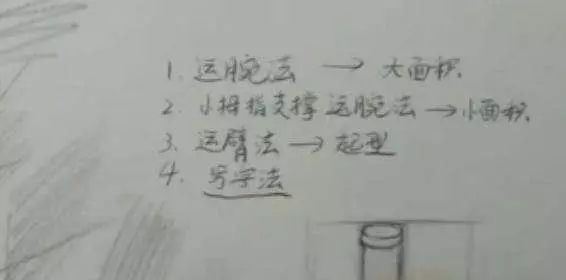 1. 运腕法 → 大面积
2. 小拇指支撑运腕法→小面积
3. 运臂法→起型
4. 写字法